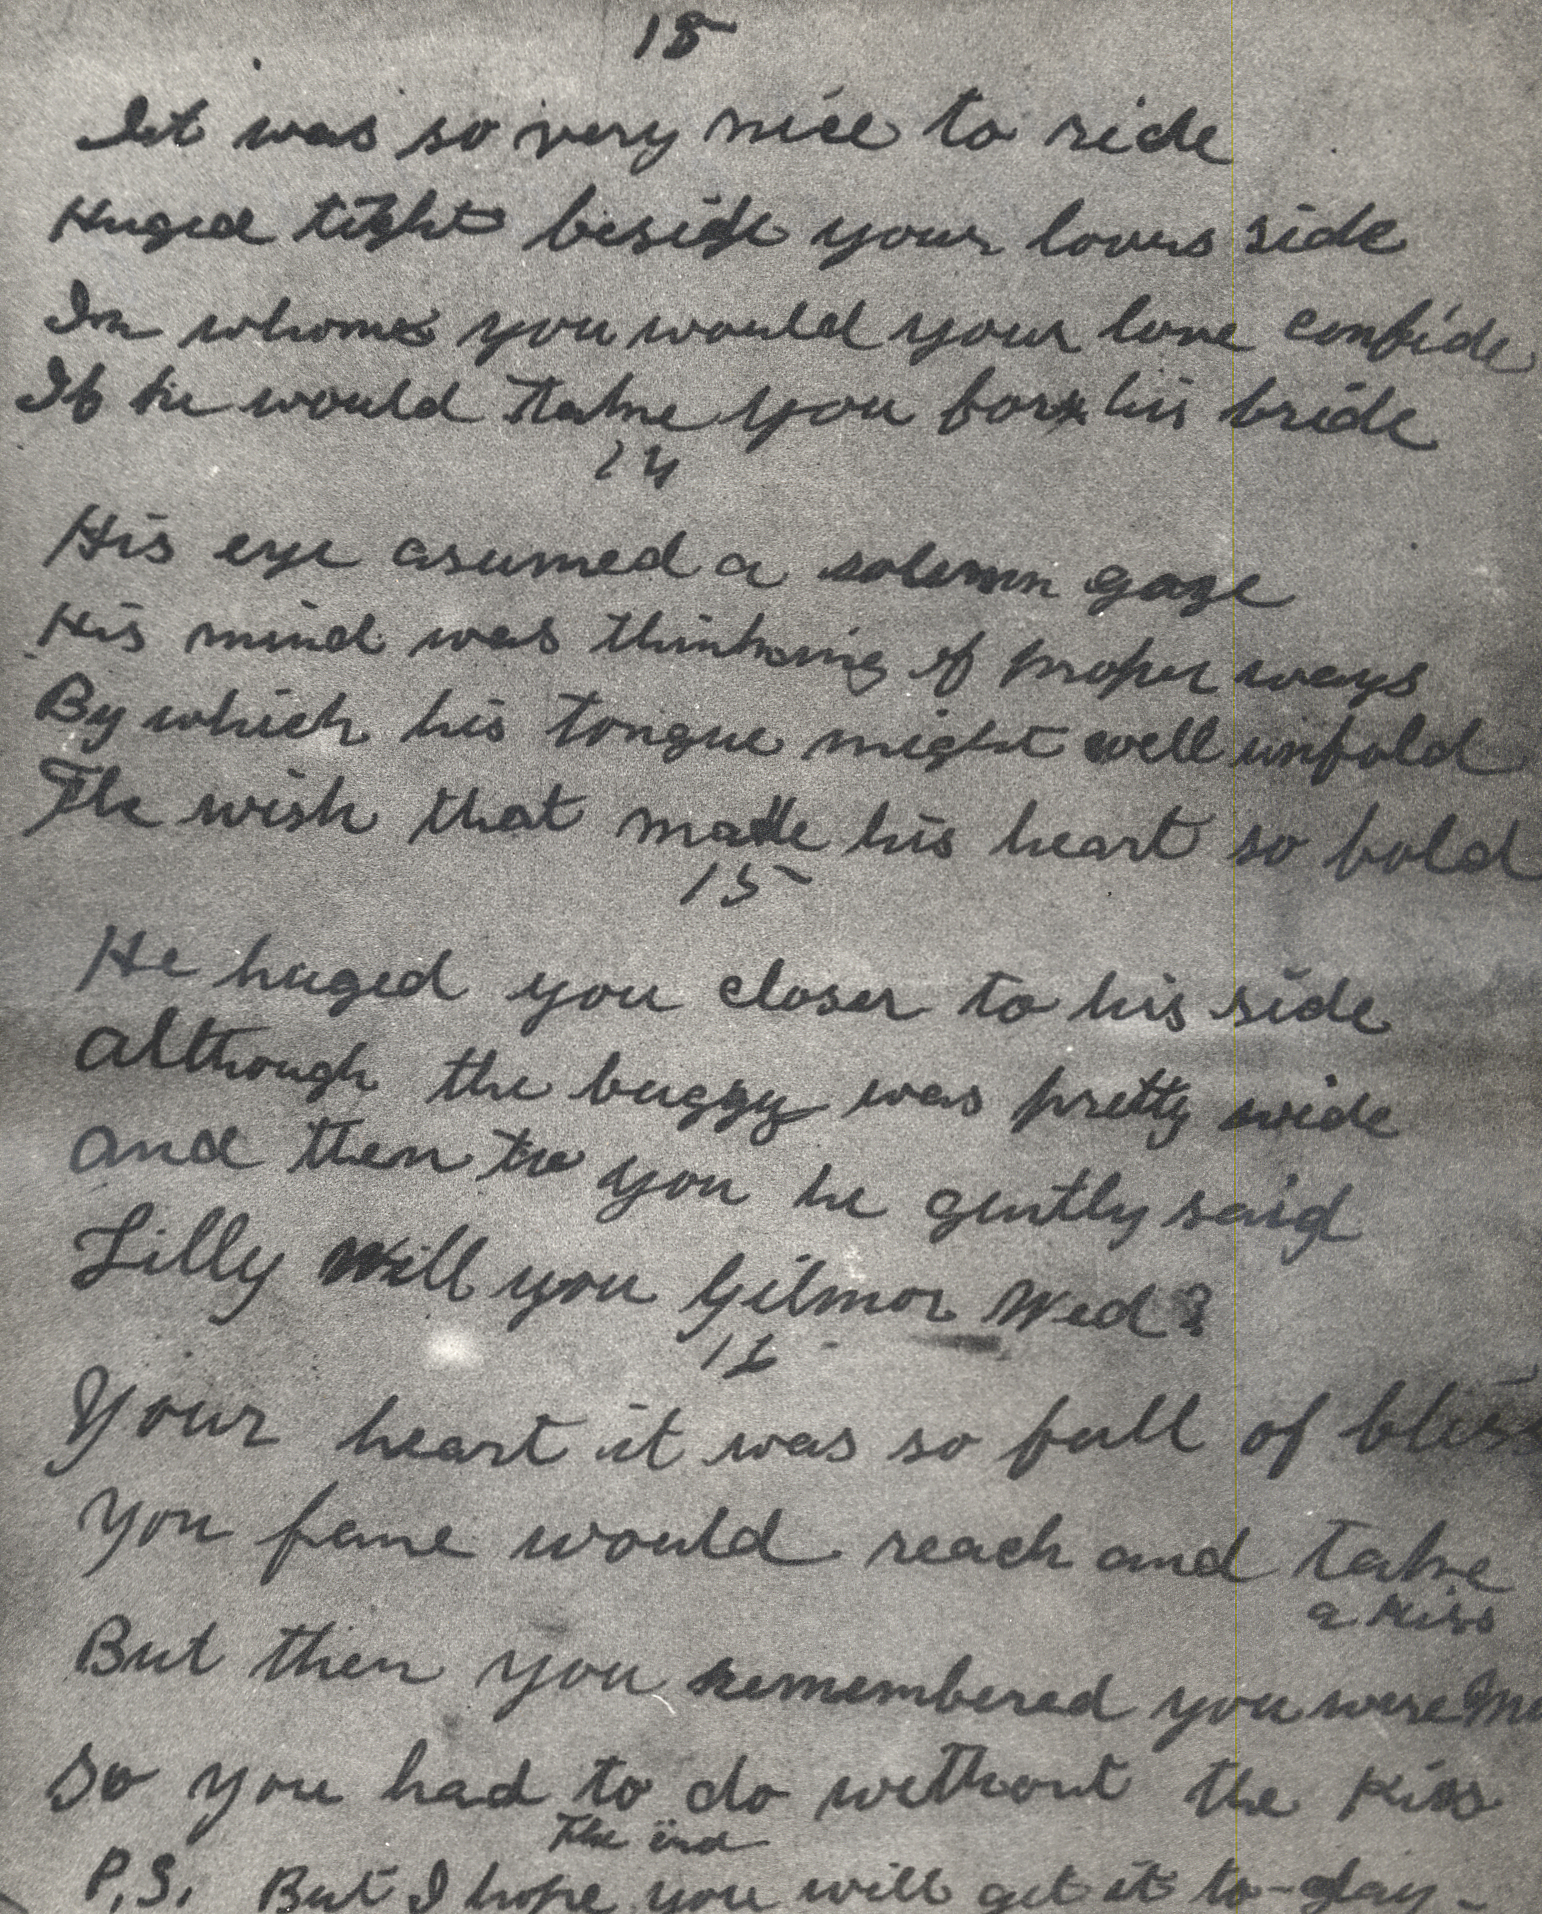 13
It was so very nice to ride
Huged tight beside your lovers side
In whome you would your love confide
If he would take you for his bride
14
His eye asumed a solemn gaze
His mind was thinking of proper ways
By which his tongue might well unfold
The wish that made his heart so bold
15
He huged you closer to his side
Although the buggy was pretty wide
And then to you he gently said
Lilly Will you Gilmor Wed?
Your heart it was so full of bliss
You fane would reach and take
a Kiss
But then you remembered you were
So you had to do without the Kiss
The end
P.S. But I hope you will get it to-day-